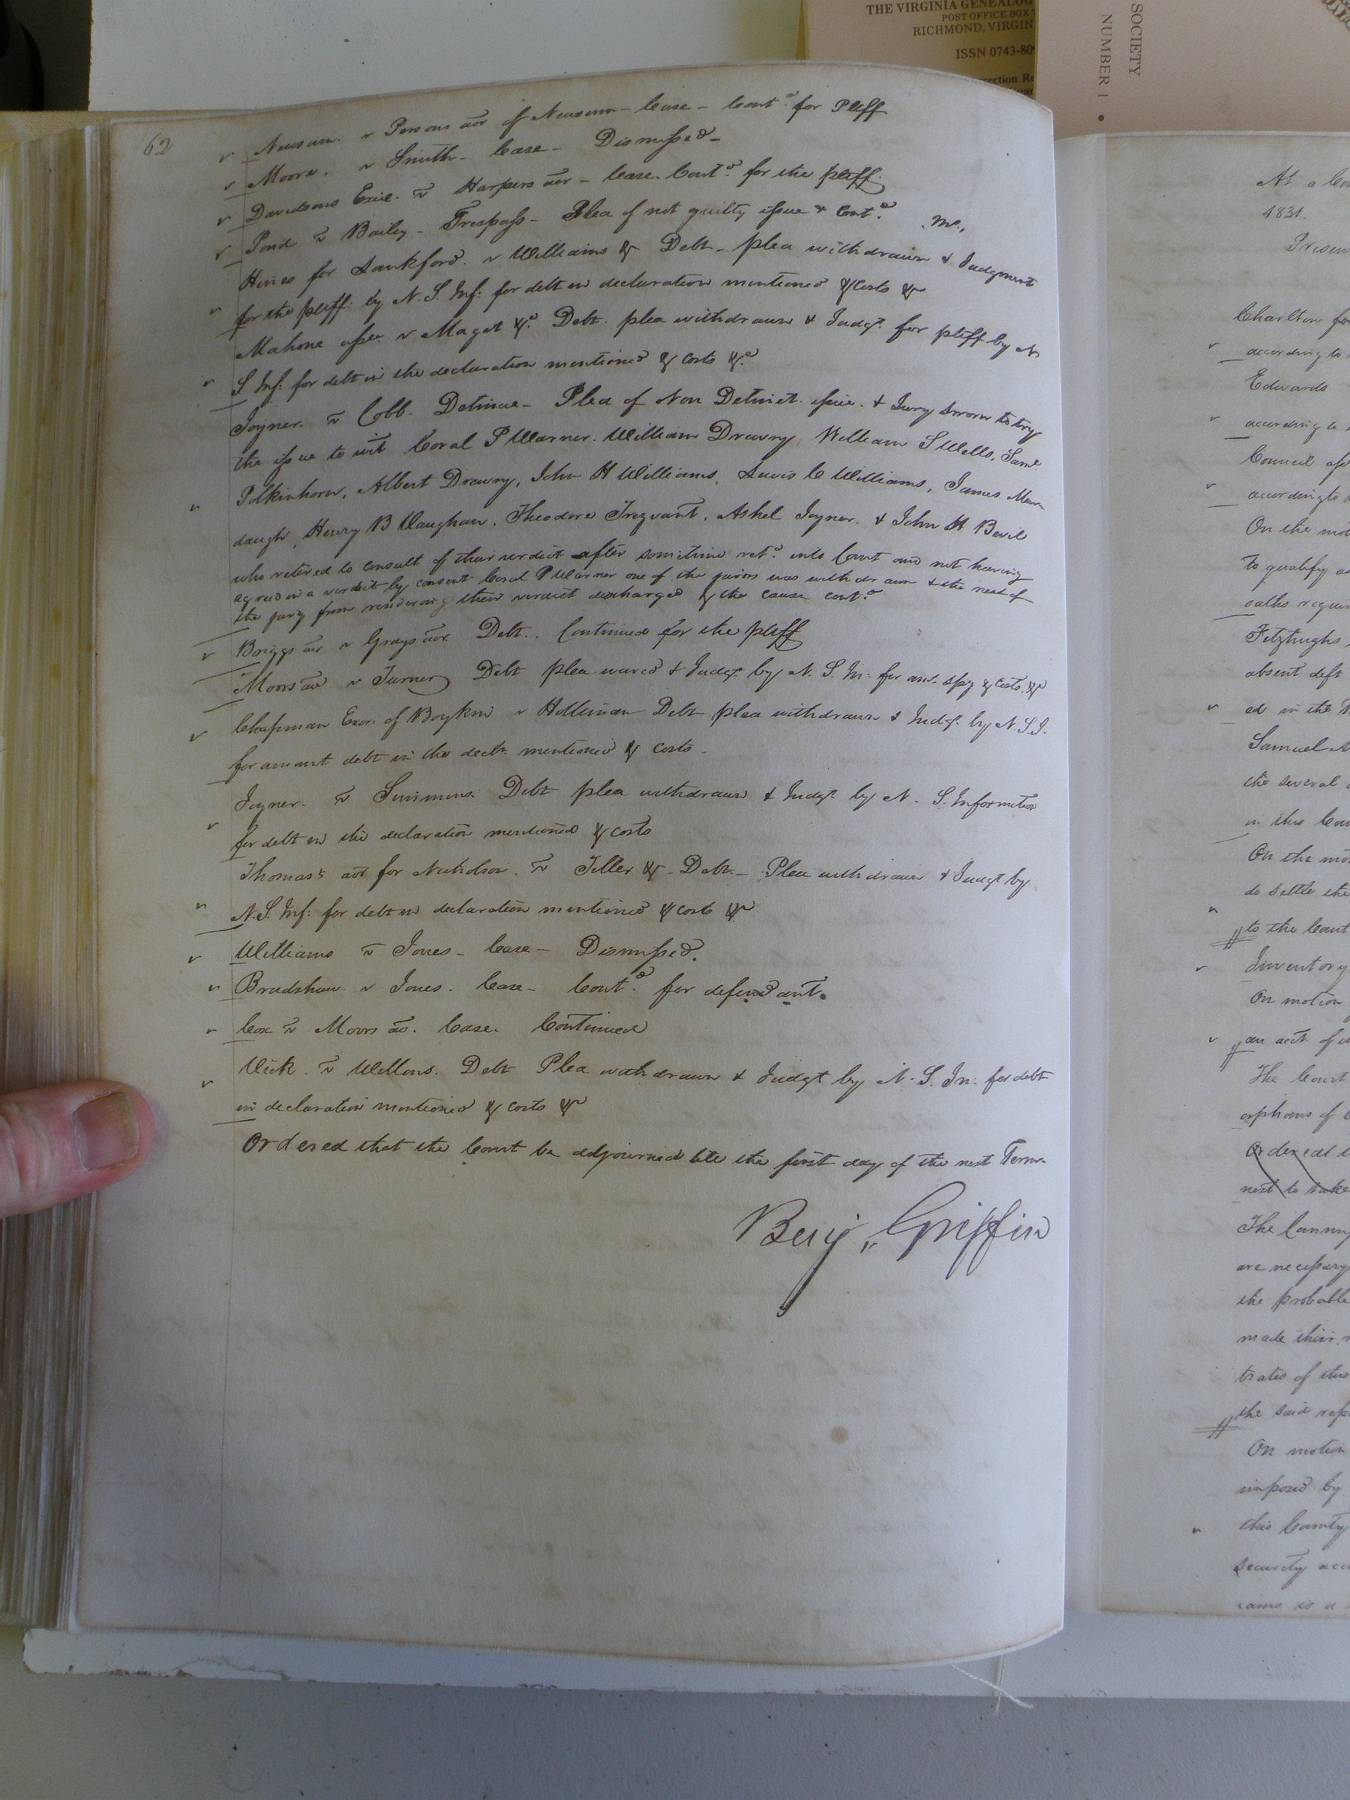 THE VIRGINIA GENEALOG
POST OFFICE BOX
RICHMOND, VIRGIN
ISSN 0743-809
ection Re
SOCIETY
NUMBER 1
62
Newsum v Persons adr of Newsum - Case - Cont.d for Pltff
Moore. v Smith - Case - Dismissed -
Davidsons Exix. v Harpers adr - Case. Cont.d for the pltff.
Pond v Bailey - Trespass - Plea of not guilty issue & Cont.d
Hines for Lankford. v Williams &c Debt - plea withdrawn & Judgment
for the pltff. by N. S. Inf: for debt in declaration mentioned & Costs &c
Mahone assee v Maget &c. Debt. plea withdrawn & Judgt. for pltff by N
S Inf: for debt in the declaration mentioned & costs &c
Joyner v Cobb. Detinue - Plea of Non Detinet. issue. & Jury sworn to try
the issue to wit Coral P Warner. William Drewry William S Wells, Saml
Polkinhorn, Albert Drewry, John H Williams, Lewis C Williams, James Mur
daugh, Henry B Vaughan, Theodore Trezvant, Ashel Joyner. & John H Bevil
who retired to consult of their verdict after sometime retd. into Court and not having
agreed in a verdict by consent Coral P Warner one of the jurors was withdrawn & the rest of
the jury from rendering their verdict discharged & the cause cont.d
Briggs adr v Grays adr Debt. Continued for the pltff
Moors adr v Turner Debt plea waved & Judgt by N. S. In: for & costs &c
Chapman Exor. of Boykin v Holleman Debt plea withdrawn & Judgt. by N. S. I.
for amount debt in the decln. mentioned & costs -
Joyner. v Simmons Debt plea withdrawn & Judgt by N. S. Information
for debt in the declaration mentioned & costs
Thomas's adr for Nicholson. v Teller &c. Debt - Plea withdrawn & Judgt by
N. S. Inf: for debt in declaration mentioned & costs &c
Williams v Jones - Case - Dismissed.
Bradshaw v Jones. Case - Cont.d for defendant.
Cox v Moors ad. Case. Continued
Vick v Wellons. Debt Plea withdrawn & Judgt by N. S. In. for debt
in declaration mentioned & costs &c
Ordered that the Court be adjourned till the first day of the next Term
Benj. Griffin
At a Cou
1831.
Presen
Charlton for
according to
Edwards
according to
Council ass
according to
On the mot
to qualify a
oaths requir
Fitzhughs
absent deft
ed in the
Samuel
the several
in this Cou
On the mot
do settle the
to the Court
Inventory
On motion
an acct of
The Court
orphans of
Ordered t
next to take
The Commi
are necessary
the probable
made their r
trates of this
the said repo
On motion
imposed by
this County
security acc